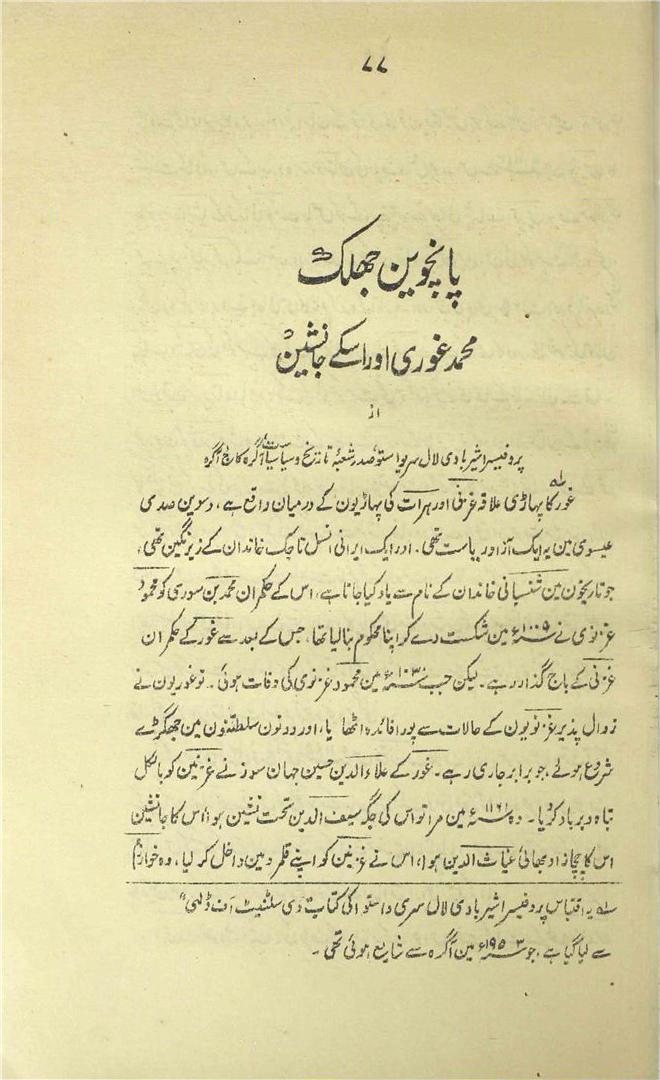 ۷۷
پانچوین جھلک
محمد غوری اور اسکے جانشین
از
پروفیسر اشیربادی لال سریواستو، صدر شعبۂ تاریخ و سیاسیات آگرہ کالج آگرہ
غور کا پہاڑی علاقہ غزنی اور ہرات کی پہاڑیون کے درمیان واقع ہے، دسوین صدی
عیسوی مین یہ ایک آزاد ریاست تھی۔ اور ایک ایرانی النسل تاجک خاندان کے زیر نگین تھی،
جو تاریخون مین شنسبانی خاندان کے نام سے یاد کیا جاتا ہے، اس کے حکمران محمد بن سوری کو محمود
غزنوی نے ۱۰۰۹ء مین شکست دے کر اپنا محکوم بنا لیا تھا، جس کے بعد سے غور کے حکمران
غزنی کے باج گذار رہے۔ لیکن جب ۱۰۳۰ء مین محمود غزنوی کی وفات ہوئی۔ تو غوریون نے
زوال پذیر غزنویون کے حالات سے پورا فائدہ اٹھایا، اور دونون سلطنتون مین جھگڑے
شروع ہوئے، جو برابر جاری رہے۔ غور کے علاء الدین حسین جہان سوز نے غزنین کو بالکل
تباہ و برباد کردیا۔ وہ ۱۱۶۱ء مین مرا تو اس کی جگہ سیف الدین تخت نشین ہوا، اس کا جانشین
اس کا چچازاد بھائی غیاث الدین ہوا، اس نے غزنین کو اپنے قلمرو مین داخل کر لیا، وہ خوارزم
لہ یہ اقتباس پروفیسر اشیربادی لال سری واستوا کی کتاب "دی سلٹنیٹ آف ڈلہی"
سے لیا گیا ہے، جو ۱۹۵۳ء مین آگرہ سے شایع ہوئی تھی۔